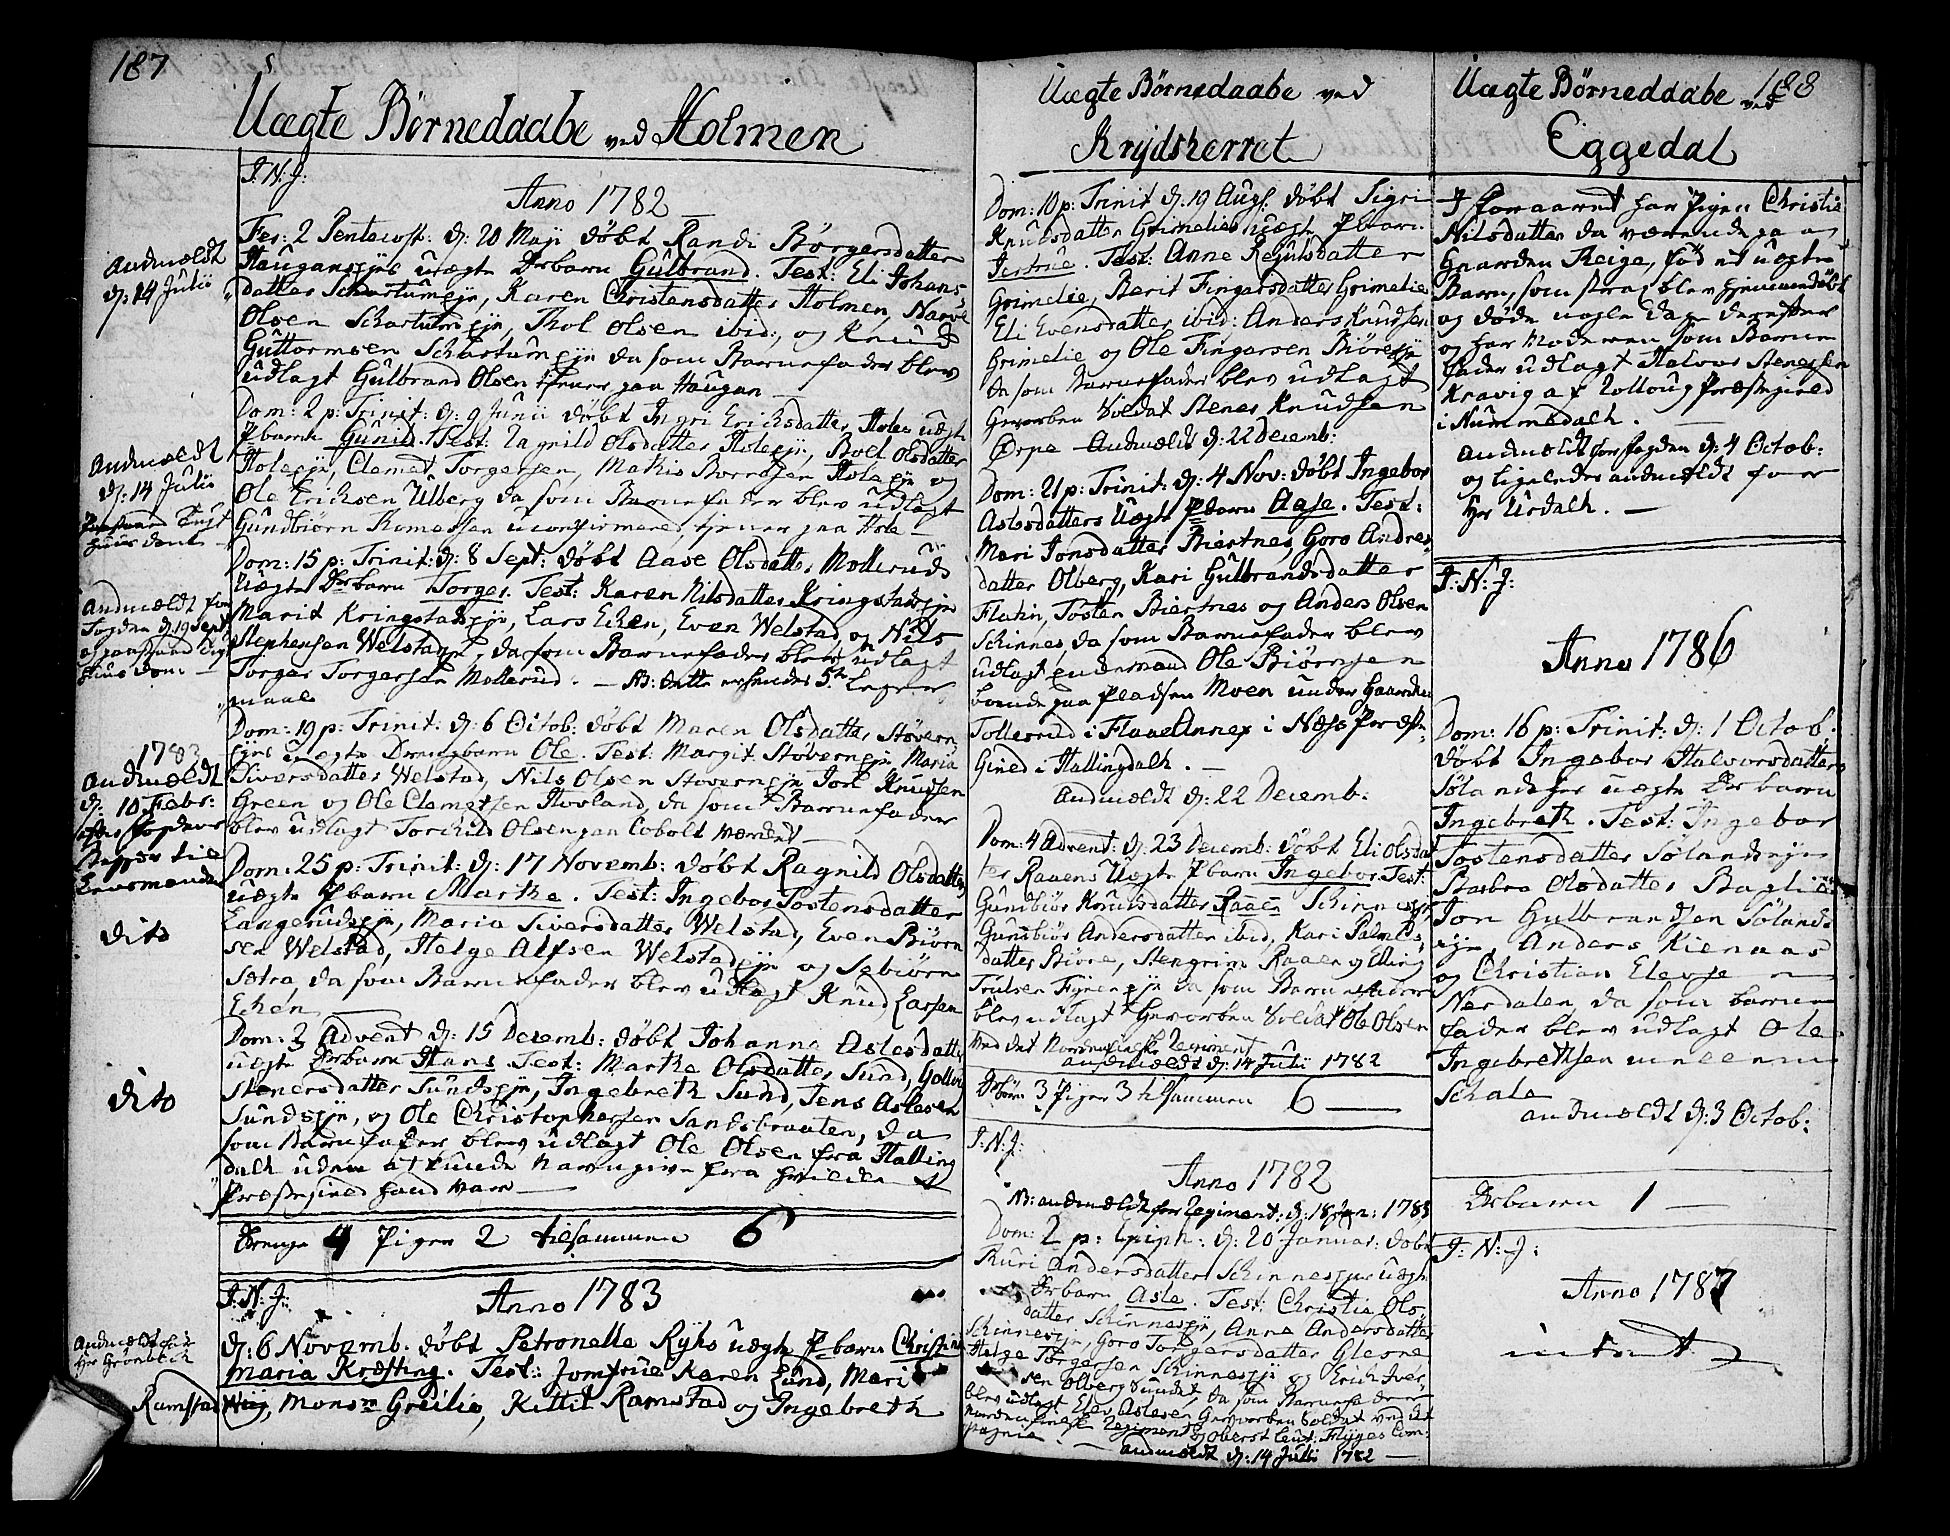 187
Uægte Børnedaabe ved Holmen
J: N: J:
Anno 1782
Fer: 2 Pentecost: d: 20 Maji døbt Randi Børgersdatter
Haugansejes uægte Drbarn Gulbrand. Test: Eli Johans-
datter Schartumeje, Karen Christensdatter Holmen, Narve
Olsen Schartumeje, Thol Olsen ibid:, og Knud
Guttormsen Schartumseje da som Barnefader blev
udlagt Gulbrand Olsen tiener paa Haugan
Anmældt
d: 14 Julii
Dom: 2 p: Trinit: d: 9 Junii døbt Ingri Ericksdatter Hole uægte
Pbarn Gunild. Test: Ragnild Olsdatter Holeeje, Boel Olsdatter
Holeeje, Clemet Torgersen, Mathis Holeeje og
Ole Ericksen Ulberg da som Barnefader blev udlagt
Gundbiørn Thomessen uconfirmeret, tiener paa Hole
Anmældt
d: 14 Julii
Dom: 15 p: Trinit: d: 8 Sept: døbt Aase Olsdatter Mollerud
Uægte Drbarn Torger. Test: Karen Nilsdatter Kringstadeje
Marit Kringstadeje, Lars Ecken, Even Welstad, og Nils
Stephensen Welstadeje, da som Barnefader blev udlagt
Torger Torgersen Mollerud. — NB: dette er hendes 5te Leger-
maal
Anmældt for
Fogden d: 19 Sept
Dom: 19 p: Trinit: d: 6 Octob: døbt Maren Olsdatter Støvern
ejes uægte Drengebarn Ole. Test: Margit Støverneje Maria
Siversdatter Welstad, Nils Olsen Støverneje Jon Knudsen
Green og Ole Clemetsen Hovland, da som Barnefader
blev udlagt Torchild Olsen paa Cobolt Værket
1783
Anmældt
d: 10 Febr:
Dom: 25 p: Trinit: d: 17 Novemb: døbt Ragnild Olsdatter
uægte Pbarn Marthe. Test: Ingebor Tostensdatter
Langerudeje, Maria Siversdatter Welstad, Even Biørn
sen Welstad, Helge Alfsen Welstadeje og Sebiørn
Sætra, da som Barnefader blev udlagt Knud Larsen
Ecken
dito
Dom: 3 Advent d: 15 Decemb: døbt Johanna Aslesdatter
uægte Drbarn Hans. Test: Marthe Olsdatter Sund, Goller
Stenersdatter Sundseje, Ingebreth Sund, Jens Aslesen
Sundseje, og Ole Christophersen Sandsbraaten, da
som Barnefader blev udlagt Ole Olsen fra Halling
dalh uden at kunde Navngive fra hvilken
Præstegield hand var
dito
Drenge 4 Piger 2 tilsammen 6
J: N: J:
Anno 1783
d: 6 Novemb. døbt Petronelle Ryhs uægte Pbarn Christine
Maria Kræfting. Test: Jomfrue Karen Lund, Mari
Ramstad, Mons Greilie, Kittil Ramstad og Ingebreth
Anmældt for
Hr Grønbech
Uægte Børnedaabe ved
Krydsherret
Dom: 10 p: Trinit d: 19 Aug: døbt Sigri
Knudsdatter Grimelies uægte Pbarn
Jertrue. Test: Anne Knudsdatter
Grimelie, Berit Fingarsdatter Grimelie
Eli Evensdatter ibid: Anders Knudsen
Grimelie og Ole Fingarsen Biøreeje
da som Barnefader blev udlagt
Gevorben Soldat Stener Knudsen
Ørpe Anmældt d: 22 Decemb:
Dom: 21 p: Trinit: d: 4 Nov: døbt Ingebor
Aslesdatters Uægte Pbarn Aase. Test:
Mari Jonsdatter Biertnes Goro Andres
datter Olberg, Kari Gulbrandsdatter
Flahin, Tosten Biertnes og Anders Olsen
Schinnes, da som Barnefader blev
udlagt endemand Ole Biørnsen
boende paa Pladsen Moen under Gaarden
Tollerud i Flaae Annex i Næss Præste
Gield i Hallingdalh. —
Anmældt d: 22 Decemb:
Dom: 4 Advent: d: 23 Decemb: døbt Eli Olsdat
ter Raaens Uægte Pbarn Ingebor. Test:
Gundbiør Knudsdatter Raaen Schinneseje
Gunbiør Andersdatter ibid, Kari Palmes
datter Biøre, Stengrim Raaen og Elling
Truelsen Fyreneje da som Barnefader
blev udlagt Gevorben Soldat Ole Olsen
ved det Nordenfieldske Regiment
anmældt d: 14 Julii 1782
Drbørn 3 Piger 3 tilsammen 6
J: N: J:
Anno 1782
NB: anmældt for Regiment: d: 18 Jan: 1783
Dom: 2 p: Epiph: d: 20 Januar: døbt
Thuri Andersdatter Schinnesejes uægte
Drbarn Asle. Test: Christie Ols-
datter Schinneseje, Anne Andersdatter
Schinneseje, Goro Torgersdatter Glesne
Helge Torgersen Schinneseje og Erich Iver-
sen Olberg Sundet, da som Barnefader
blev udlagt Elev Aslesen Gevorben Soldat ved det
Nordenfieldske Regiment og Oberst Leut: Flyges Com-
pagnie. — anmældt d: 14 Julii 1782 —
Uægte Børneddabe ved 188
Eggedal
I foraaret har Pigen Christie
Nilsdatter da værende paa
Gaarden Teige, fød et uægte
Barn, som strax blev hiemmedøbt
og døde nogle dage derefter
og har Moderen som Barne
fader udlagt Halvor Stenersen
Kravig af Rolloug Præstegield
i Nummedalh.
Anmældt for fogden d: 4 Octob:
og ligeledes anmældt for
Hr Usdalh. —
J: N: J:
Anno 1786
Dom: 16 p: Trinit: d: 1 Octob.
døbt Ingebor Halvorsdatter
Sølandsejes uægte Drbarn
Ingebreth. Test: Ingebor
Tostensdatter Sølandseje
Barbra Olsdatter Baglie
Jon Gulbrandsen Sølands
eje, Anders Kienaas
og Christian Elevse
Nerdalen, da som barne
fader blev udlagt Ole
Ingebrethsen
Schale
anmældt d: 3 Octob:
Drbarn 1 —
J: N: J:
Anno 1787
intet